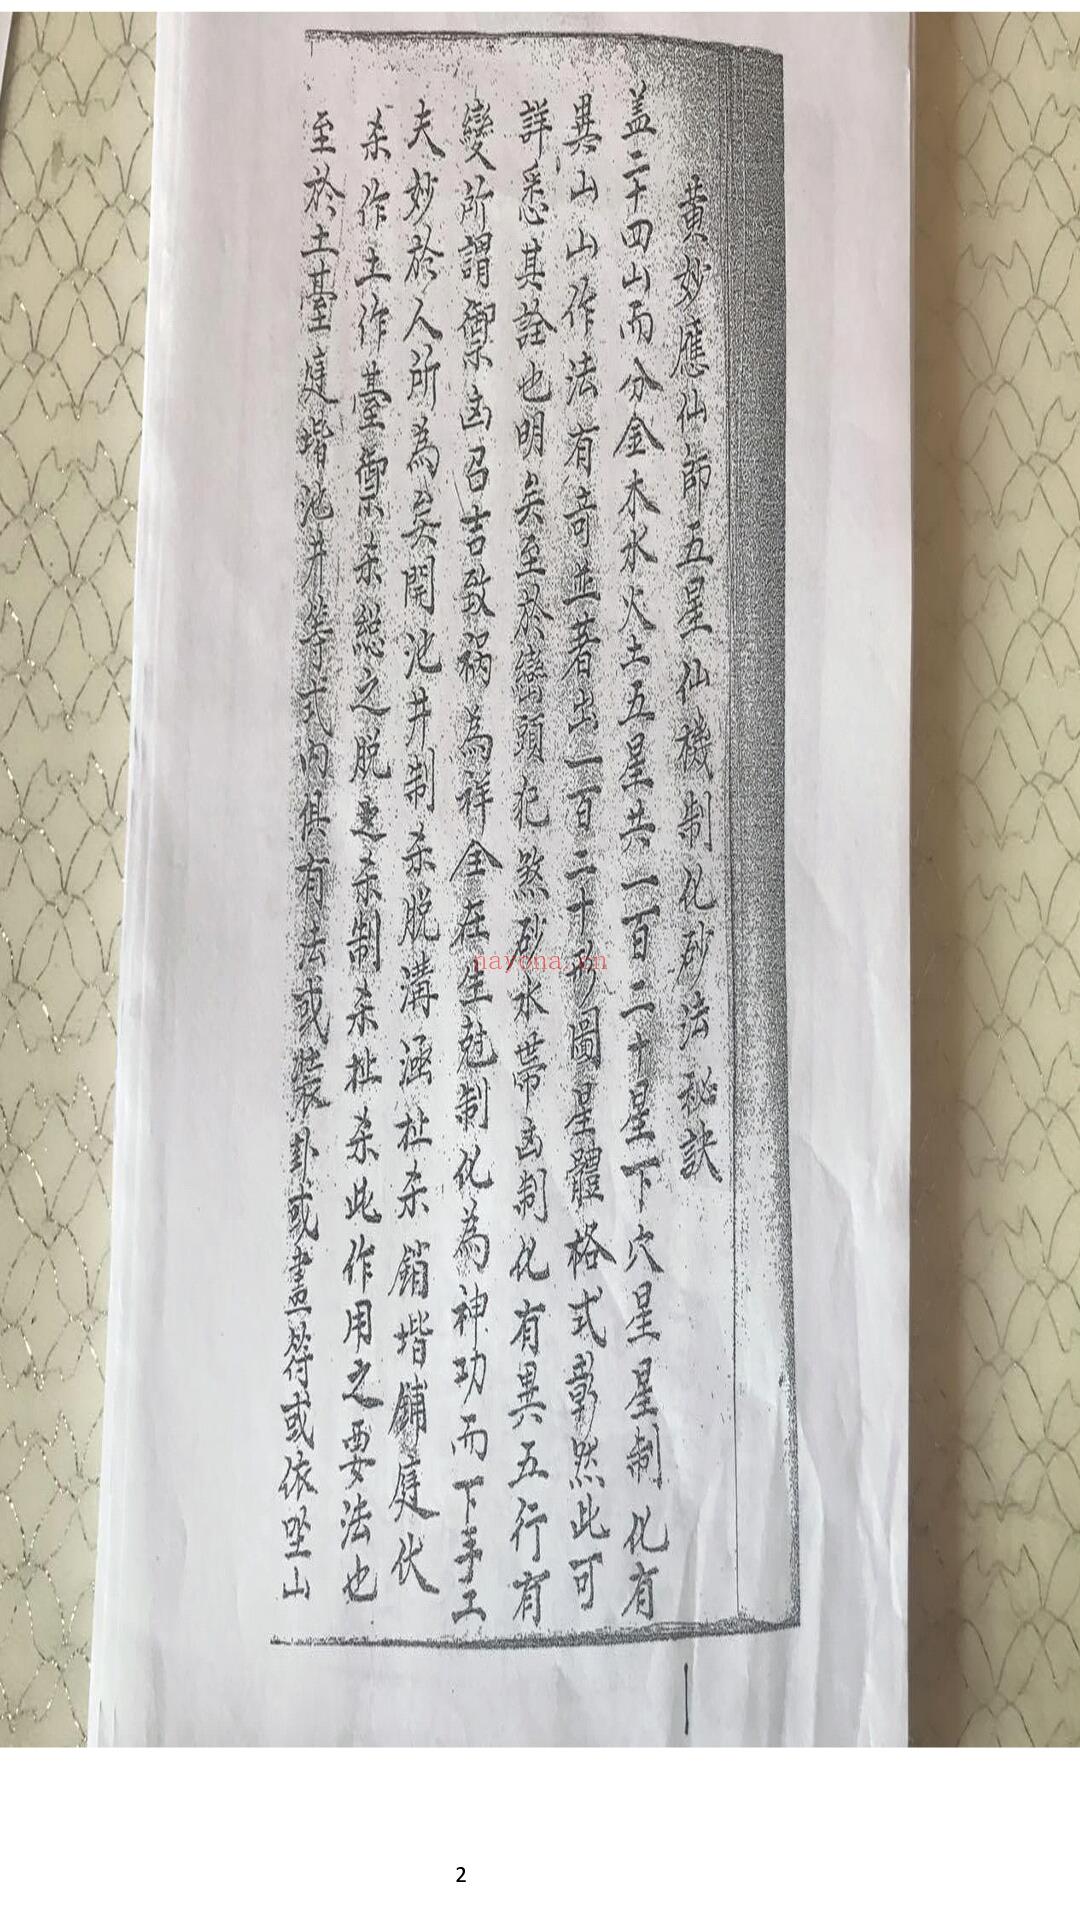 黄妙應仙師五星仙機制化砂法秘訣
盖二十四山而分金木水火土五星共一百二十星下穴星星制化有
異山山作法有竒並著出一百二十砂圖星體格式彰然此可
詳悉其詮也明矣至於巒頭犯煞砂水帶凶制化有異五行有
變所謂禦凶召吉致禍為祥全在生尅制化為神功而下手工
夫妙於人所為矣開池井制杀脱溝涵杜杀銷堦鋪庭伏
杀作土作臺禦杀總之脱之杀制杀杜杀此作用之要法也
至於土臺庭堦池井等式内俱有法或裝卦或畫符或依坐山
nayona.cn
一
2